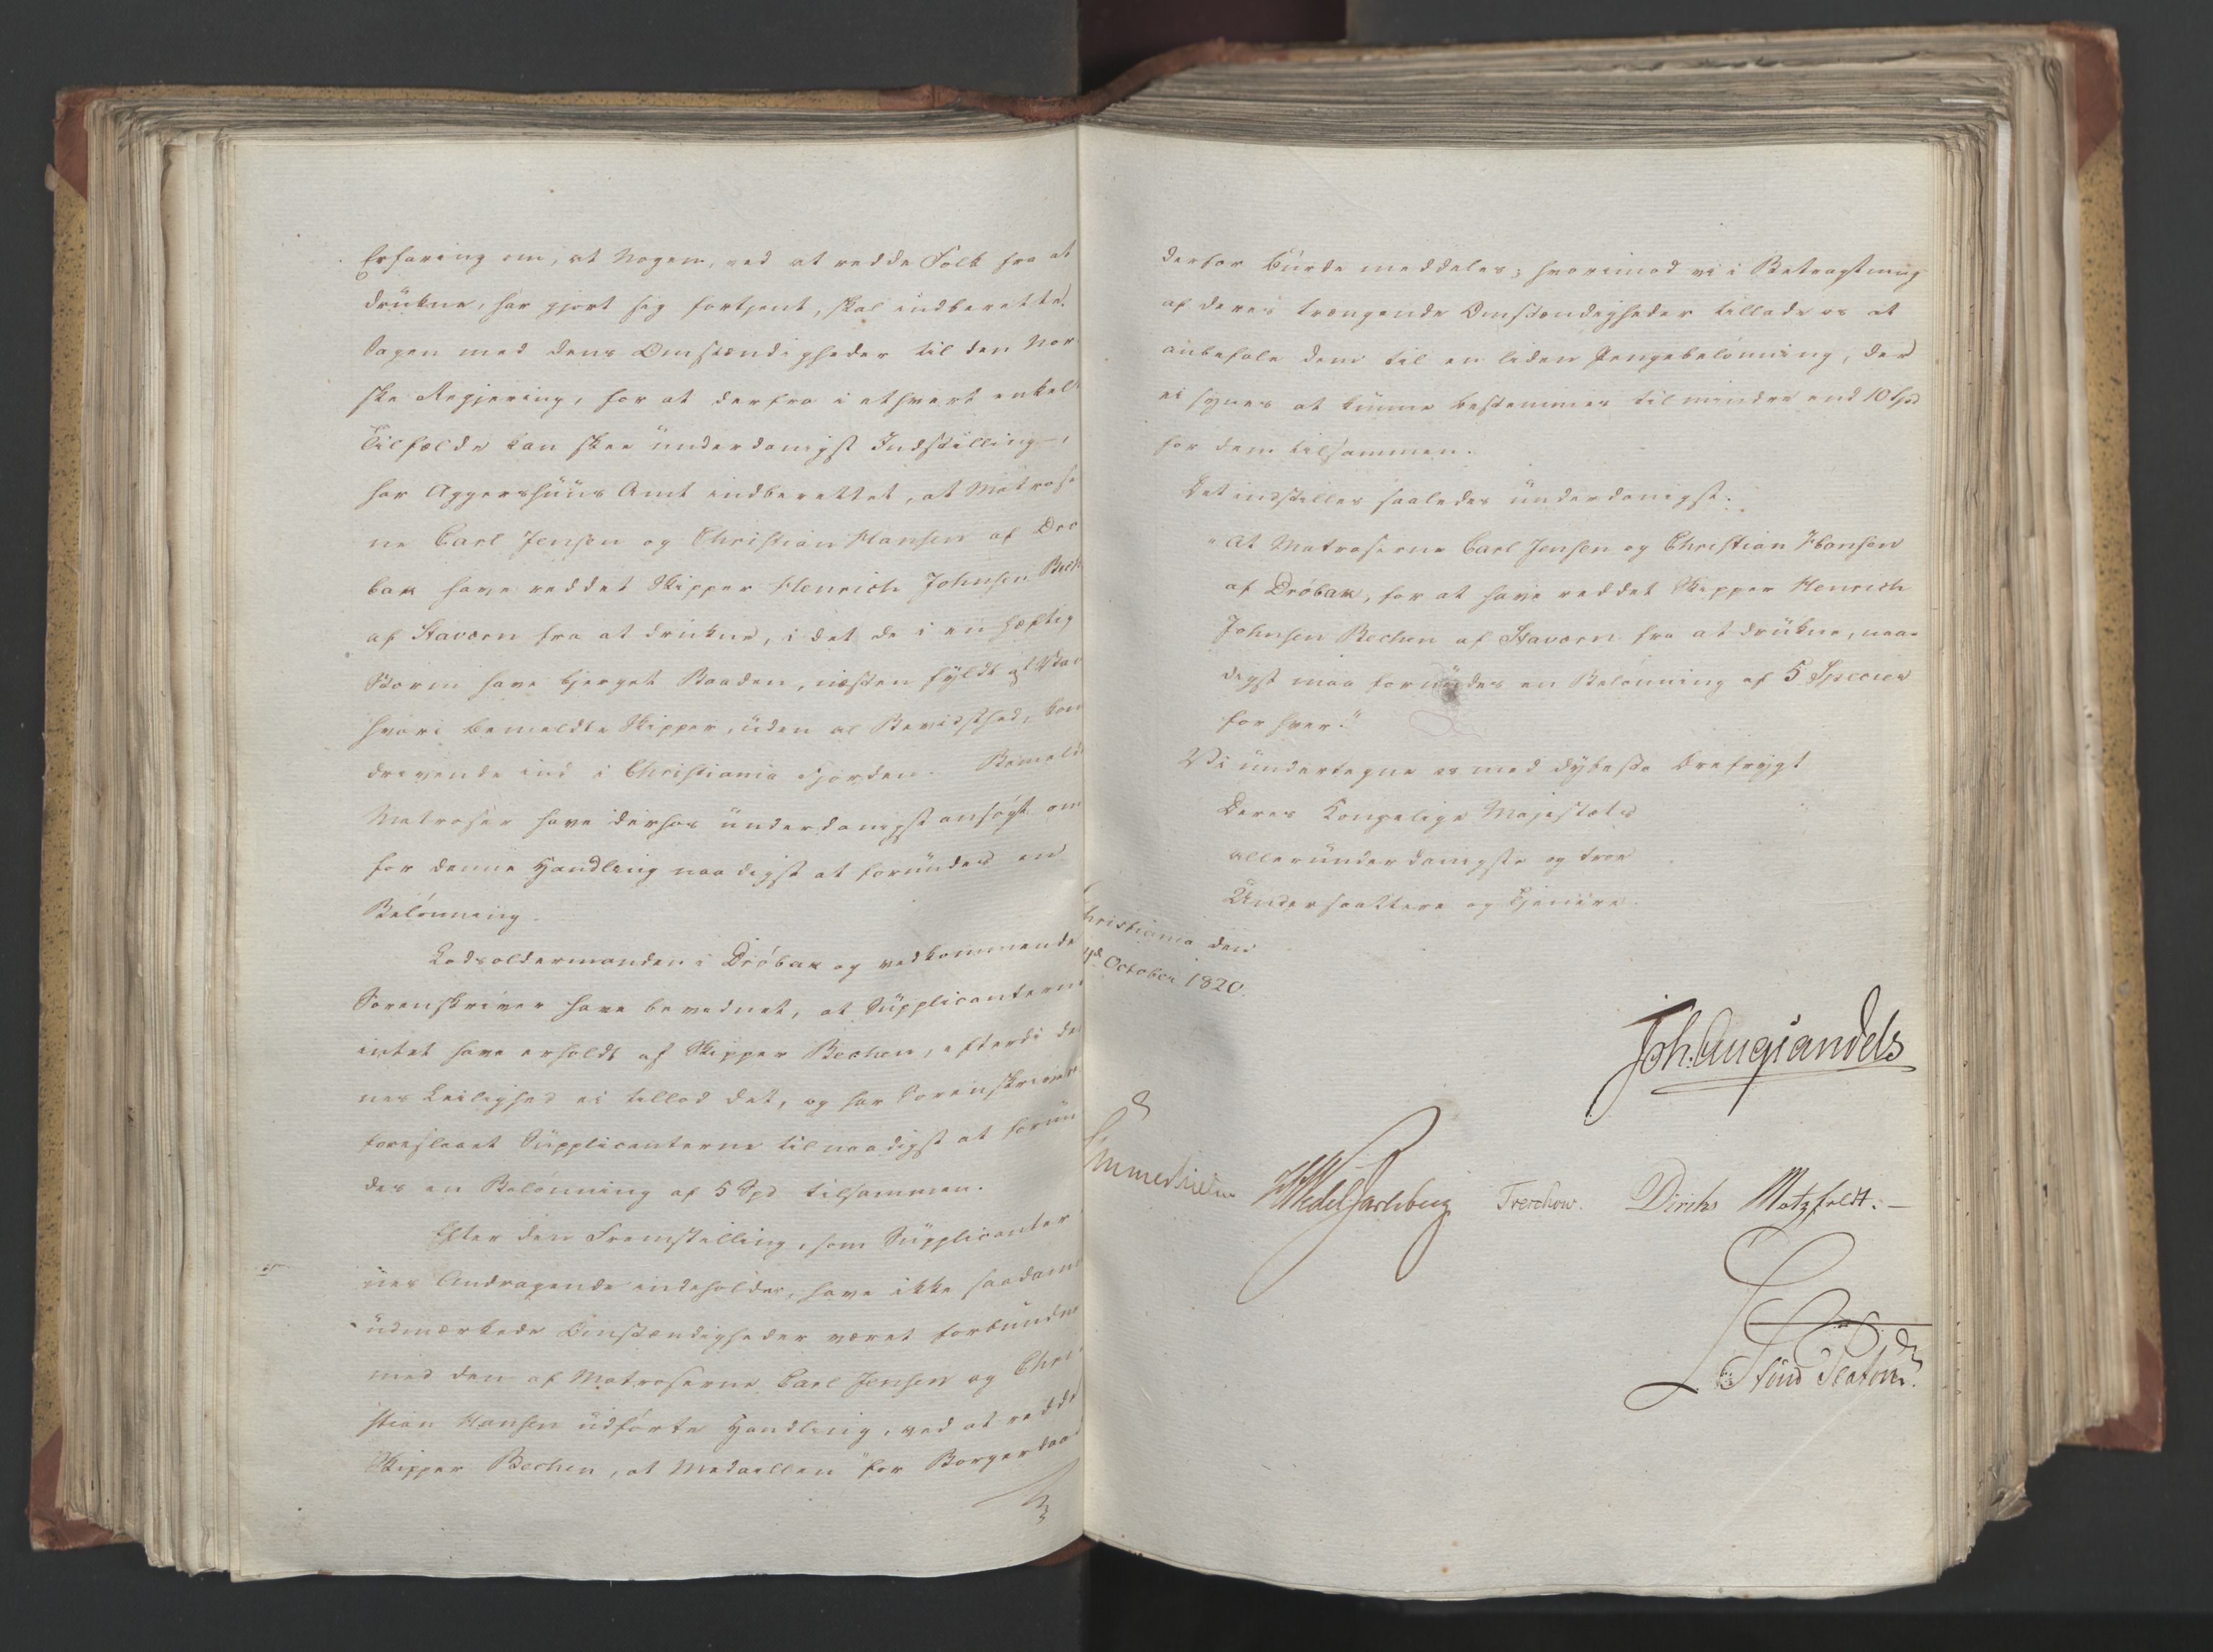 Erfaring om, at Nogen, ved at redde Folk fra at
drukne, har gjort sig fortjent, skal indberette
Sagen med dens Omstændigheder til den Nor
ske Regjering, for at derfra i ethvert enkelt
Tilfælde kan skee underdanigst Indstilling,
har Aggershuus Amt indberettet, at Matroser
ne Carl Jensen og Christian Hansen af Drø
bak have reddet Skipper Henrich Johnsen Bech
af Stavern fra at drukne, i det de i en heftig
Storm have bjerget Baaden, næsten fyldt af Van
hvori bemeldte Skipper, uden al Bevidsthed, kom
drivende ind i Christiania Fjorden. Bemeld
Matroser have derhos underdanigst ansøgt om
for denne Handling naadigst at forundes en
Belønning.
Lodsoldermanden i Drøbak og vedkommende
Sorenskriver have bevidnet, at Supplicanterne
intet have erholdt af Skipper Bechen, efterdi de
nes Leilighed ei tillod det, og har Sorenskriver
foreslaaet Supplicanterne til naadigst at forun
des en Belønning af 5 Spd tilsammen.
Efter den Fremstilling, som Supplicanter
nes Andragende indeholder, have ikke saadanne
udmærkede Omstændigheder været forbundne
med den af Matroserne Carl Jensen og Chri
stian Hansen udførte Handling, ved at redde
Skipper Bechen, at Medaillen "for Borgerdaad
derfor burde meddeles; hvorimod vi i Betragtning
af deres trængende Omstændigheder tillade os at
anbefale dem til en liden Pengebelønning, der
ei synes at kunne bestemmes til mindre end 10 Spd
for dem tilsammen.
Det indstilles saaledes underdanigst:
"At Matroserne Carl Jensen og Christian Hansen
af Drøbak, for at have reddet Skipper Henrich
Johnsen Bechen af Stavern fra at drukne, naa-
digst maa forundes en Belønning af 5 Species
for hver."
Vi undertegne os med dybeste Ærefrygt
Deres Kongelige Majestæts
allerunderdanigste og troe
Undersaattere og Tjenere.
Christiania den
October 1820.
Joh. Aug Sandels
Sommerhielm
WedelJarlsberg
Treschow.
Diriks
Motzfeldt.